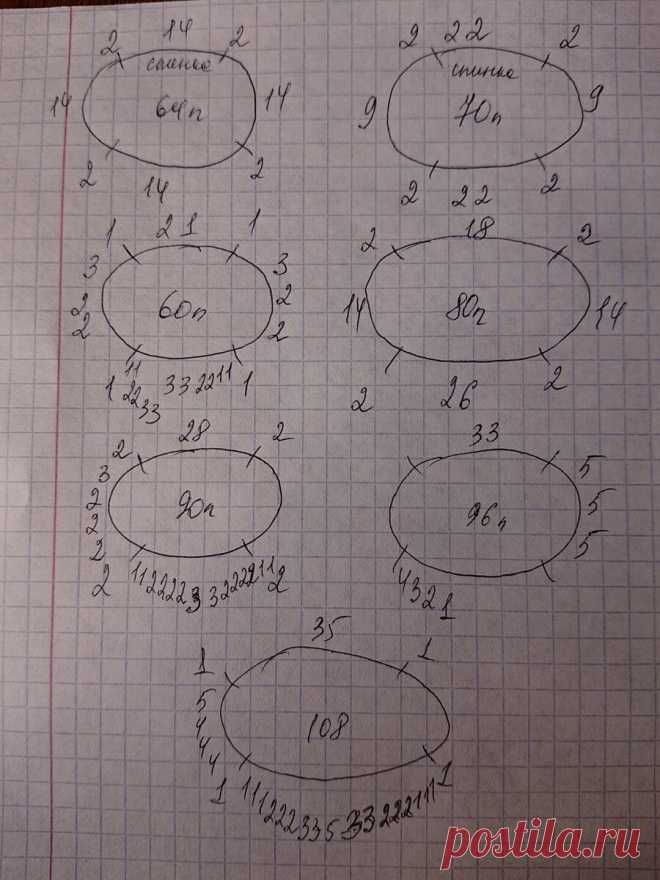 2 14 2
спинка
14 64п 14
2 14 2
2 22 2
спинка
9 70п 9
2 22 2
1 21 1
3 3
2 60п 2
2 2
11 1
1 22 33 33 22 11
2 18 2
14 80п 14
2 26 2
2 28 2
3
2 90п
2
2
2 11 2222 3 3 2222 11 2
33 5
96п 5
5
4 3 2 1
35
1 1
5
4 108
4
4
1 111 222 33 5 33 222 111 1
postila.ru